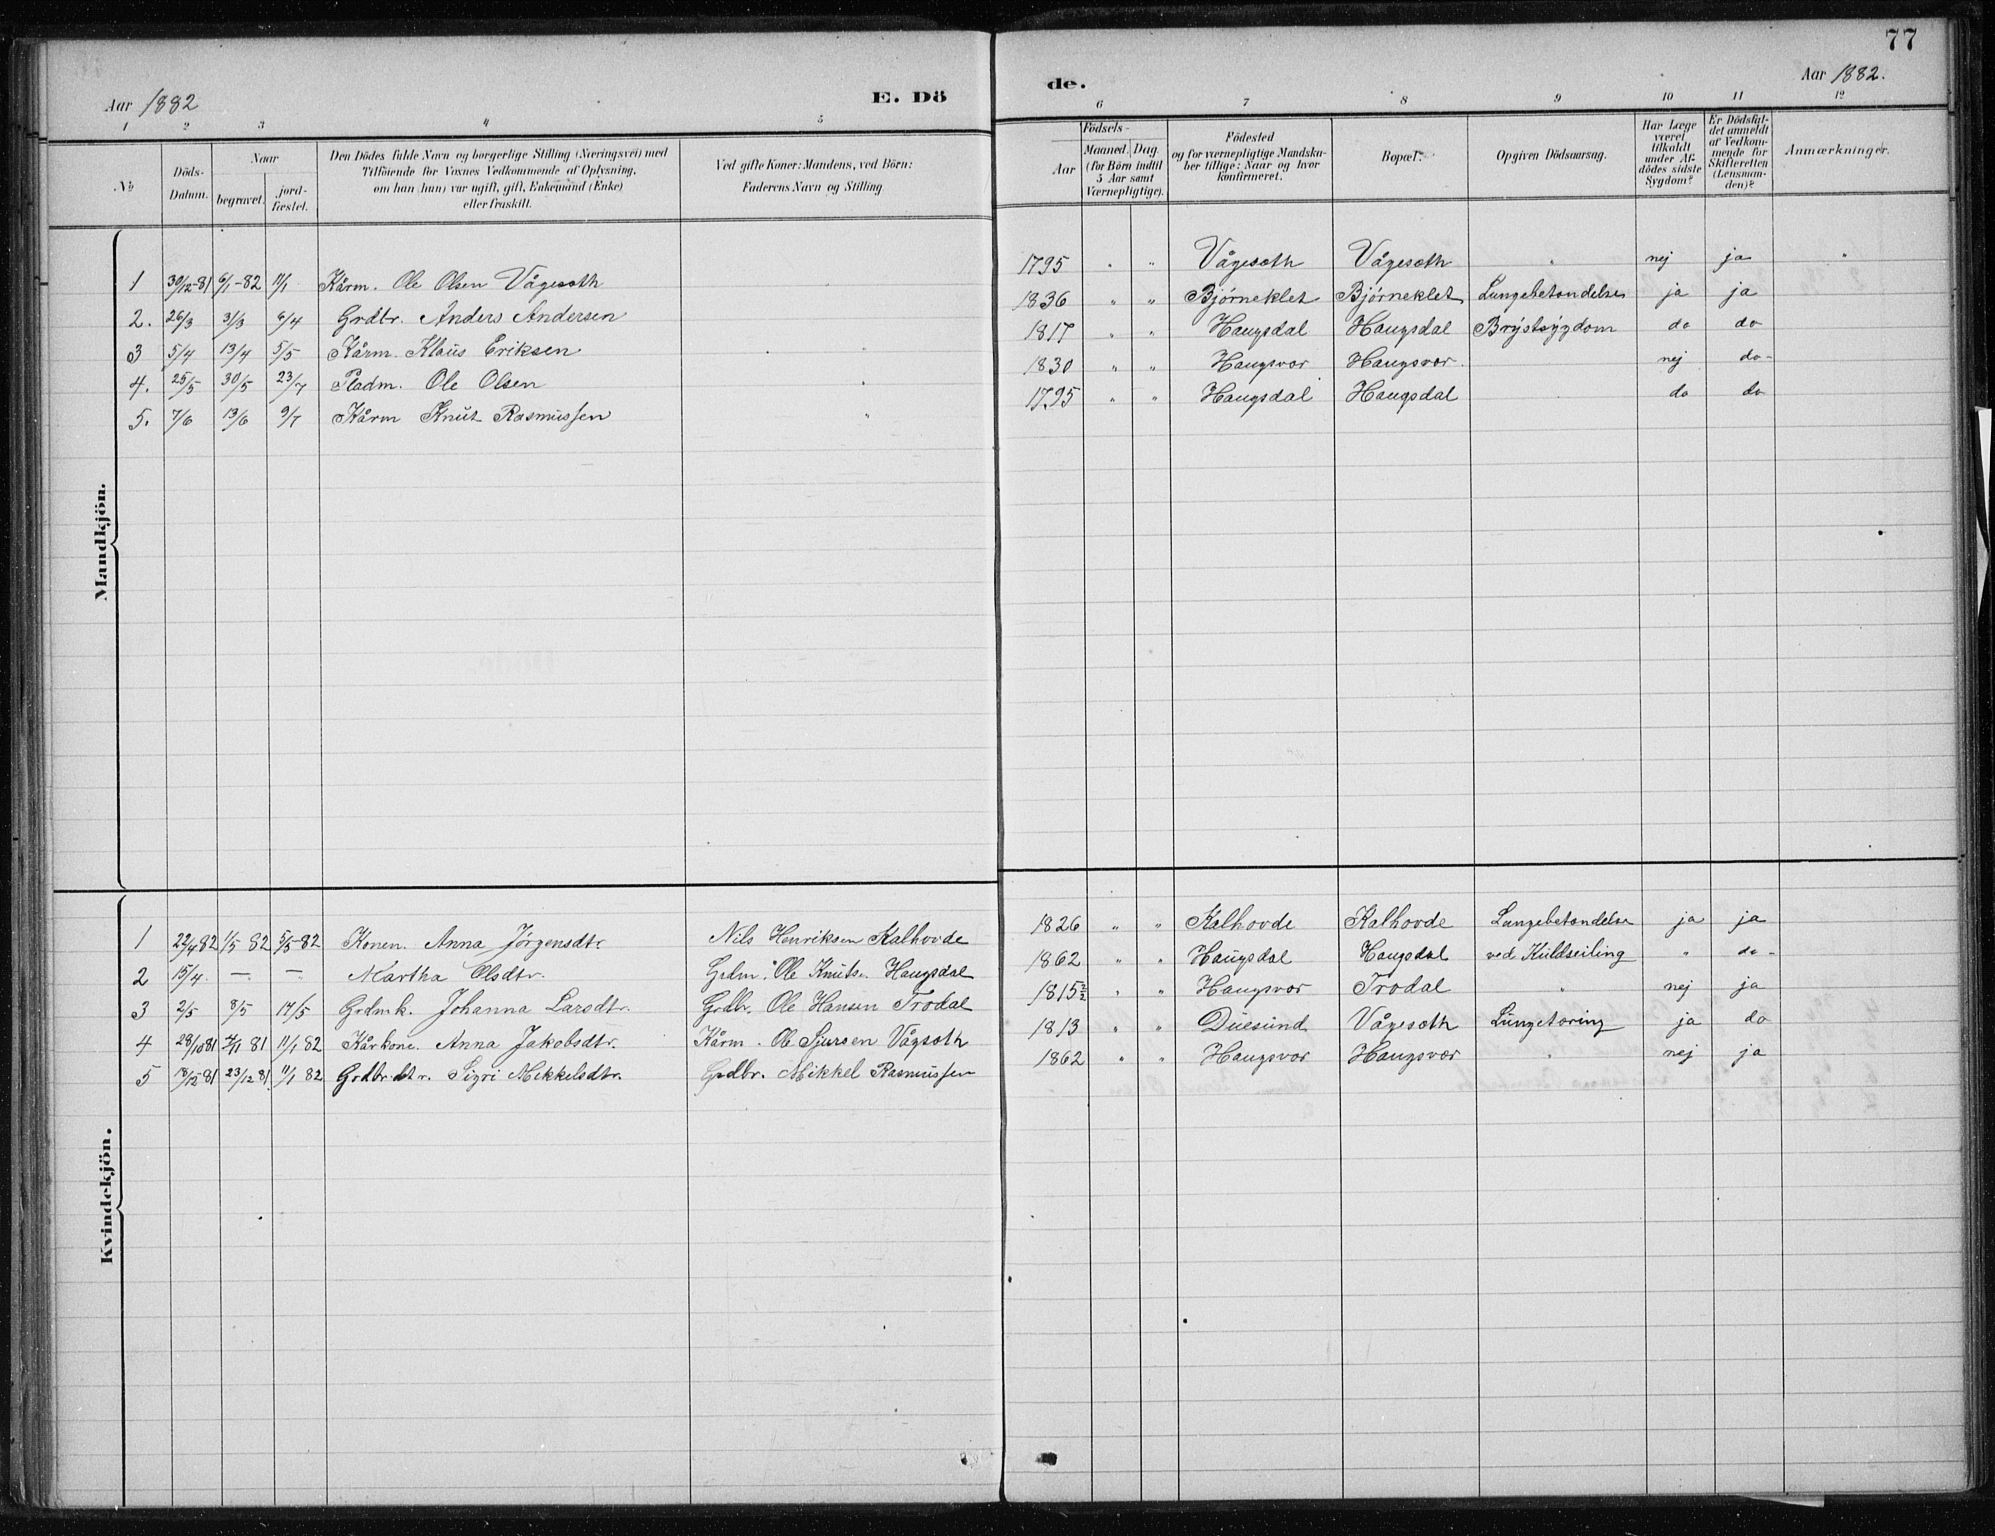 77
Aar 1882
E. Dö
de.
Aar 1882.
1 2 3 4 5 6 7 8 9 10 11 12
No
Döds-
Datum.
Naar
begravet.
jord-
fæstet.
Den Dödes fulde Navn og borgerlige Stilling (Næringsvei) med
Tilföiende for Voxnes Vedkommende af Oplysning,
om han (hun) var ugift, gift, Enkemand (Enke)
eller fraskilt.
Ved gifte Koner: Mandens, ved Börn:
Faderens Navn og Stilling.
Födsels-
Aar
Maaned. Dag.
(for Börn indtil
5 Aar samt
Værnepligtige).
Födested
og for værnepligtige Mandska-
ber tillige: Naar og hvor
konfirmeret.
Bopæl.
Opgiven Dödsaarsag.
Har Læge
været
tilkaldt
under Af-
dödes sidste
Sygdom?
Er Dödsfal-
det anmeldt
af Vedkom-
mende for
Skifteretten
(Lensman-
den)?
Anmærkninger.
Mandkjön.
1 30/12-81 6/1-82 11/1 Kårm. Ole Olsen Vågesæth 1795 " " Vågesæth Vågesæth " nej ja "
2. 26/3 3/3 6/4 Grdbr. Anders Andersen 1836 " " Bjørneklet Bjørneklet Lungebetændelse ja ja
3 5/4 13/4 5/5 Kårm. Klaus Eriksen " 1817 " " Haugsdal Haugsdal Brýstsýgdom do do
4. 25/5 30/5 23/7 Pladm. Ole Olsen " 1830 " " Haugsvær Haugsvær nej do-
5. 7/6 13/6 9/7 Kårm Knut Rasmussen " 1795 " " Haugsdal Haugsdal do do
Kvindekjön.
1 22/4 82 1/5 82 5/5 82 Konen. Anna Jörgensdtr Nils Henriksen Kalhovde 1826 " " Kalhovde Kalhovde Lungebetændelse ja ja
2 15/4. — — Martha Olsdtr. Grdm. Ole Knuts. Haugsdal 1862 " " Haugsdal Haugsdal ved Kuldseiling " do-
3 2/5 8/5 17/5 Grdmk. Johanna Larsdtr. Grdbr. Ole Hansen Trodal 1815 2/2 " " Haugsvær Trodal " nej ja
4 28/10 81 7/11 81 11/1 82 Kårkone. Anna Jakobsdtr. Kårm. Ole Sjursen Vågsæth 1813 " " Duesund Vågesæth Lungetæring ja do
5 18/12 81 23/12 81 11/1 82 Grdbr.dtr. Sigri Mikkelsdtr. Grdbr. Mikkel Rasmussen 1862 " " Haugsvær Haugsvær " nej ja